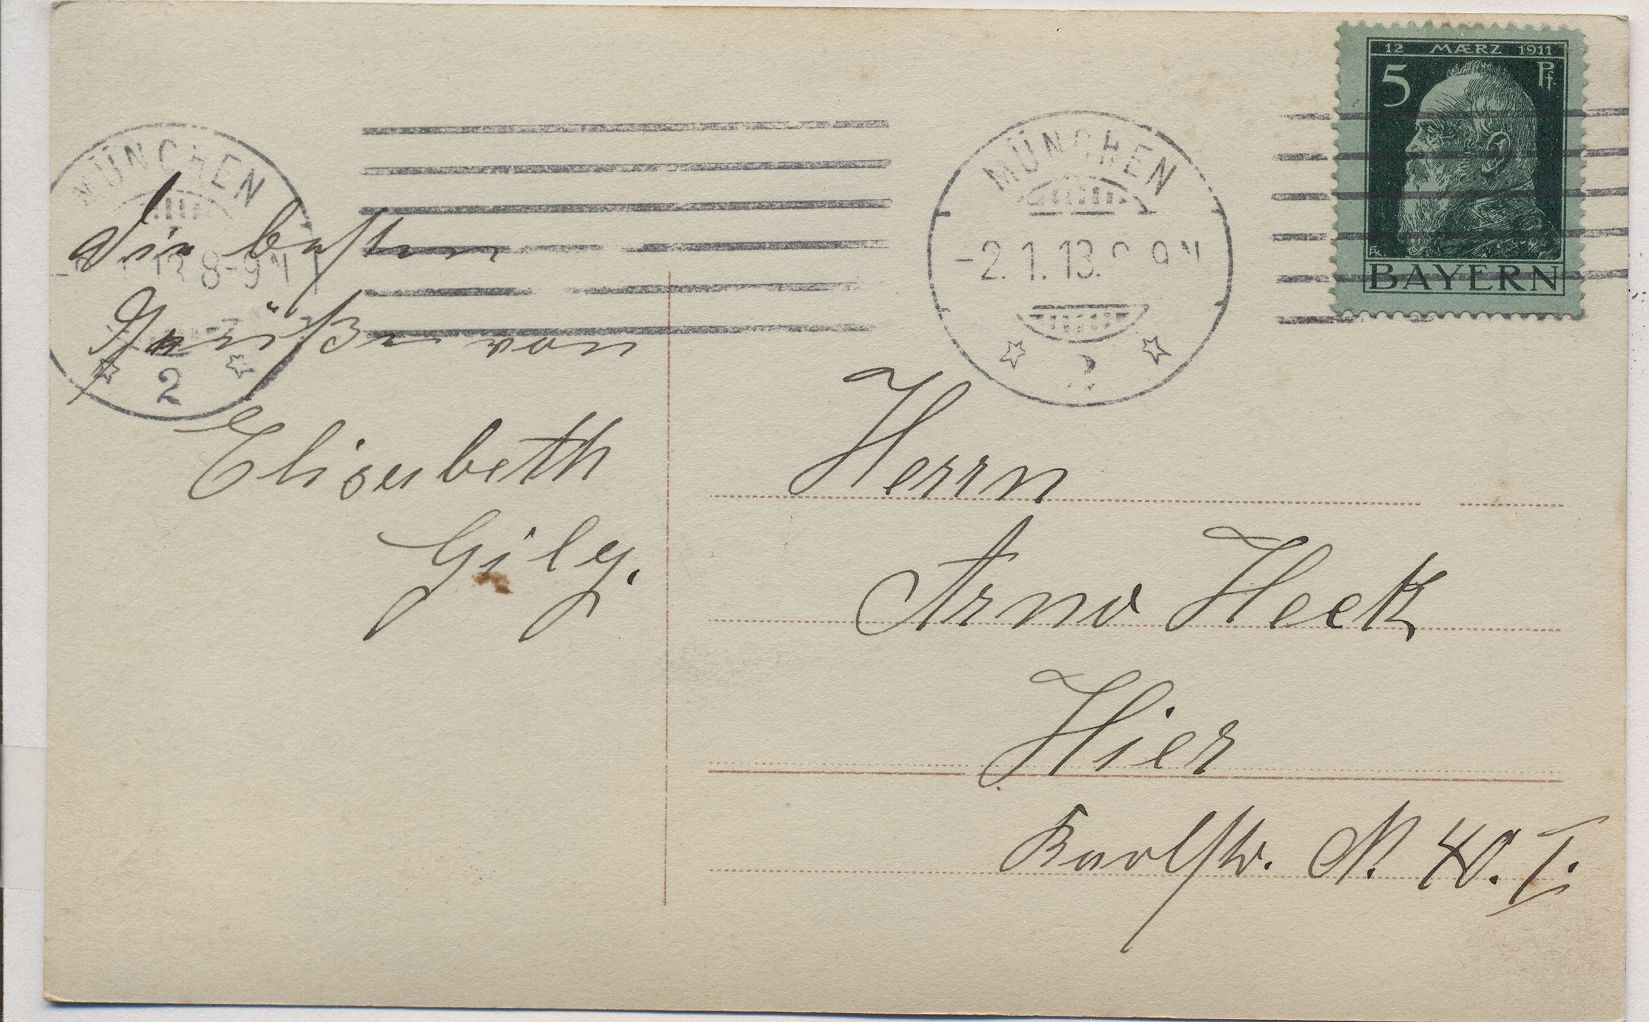 12 MÆRZ 1911
5 Pf.
BAYERN
MÜNCHEN
8-9 N
2
MÜNCHEN
-2.1.13. 8-9 N
2
Die besten
Grüße von
Elisabeth
Gilg.
Herrn
Arno Heck
Hier
Karlstr. N. 40. I.